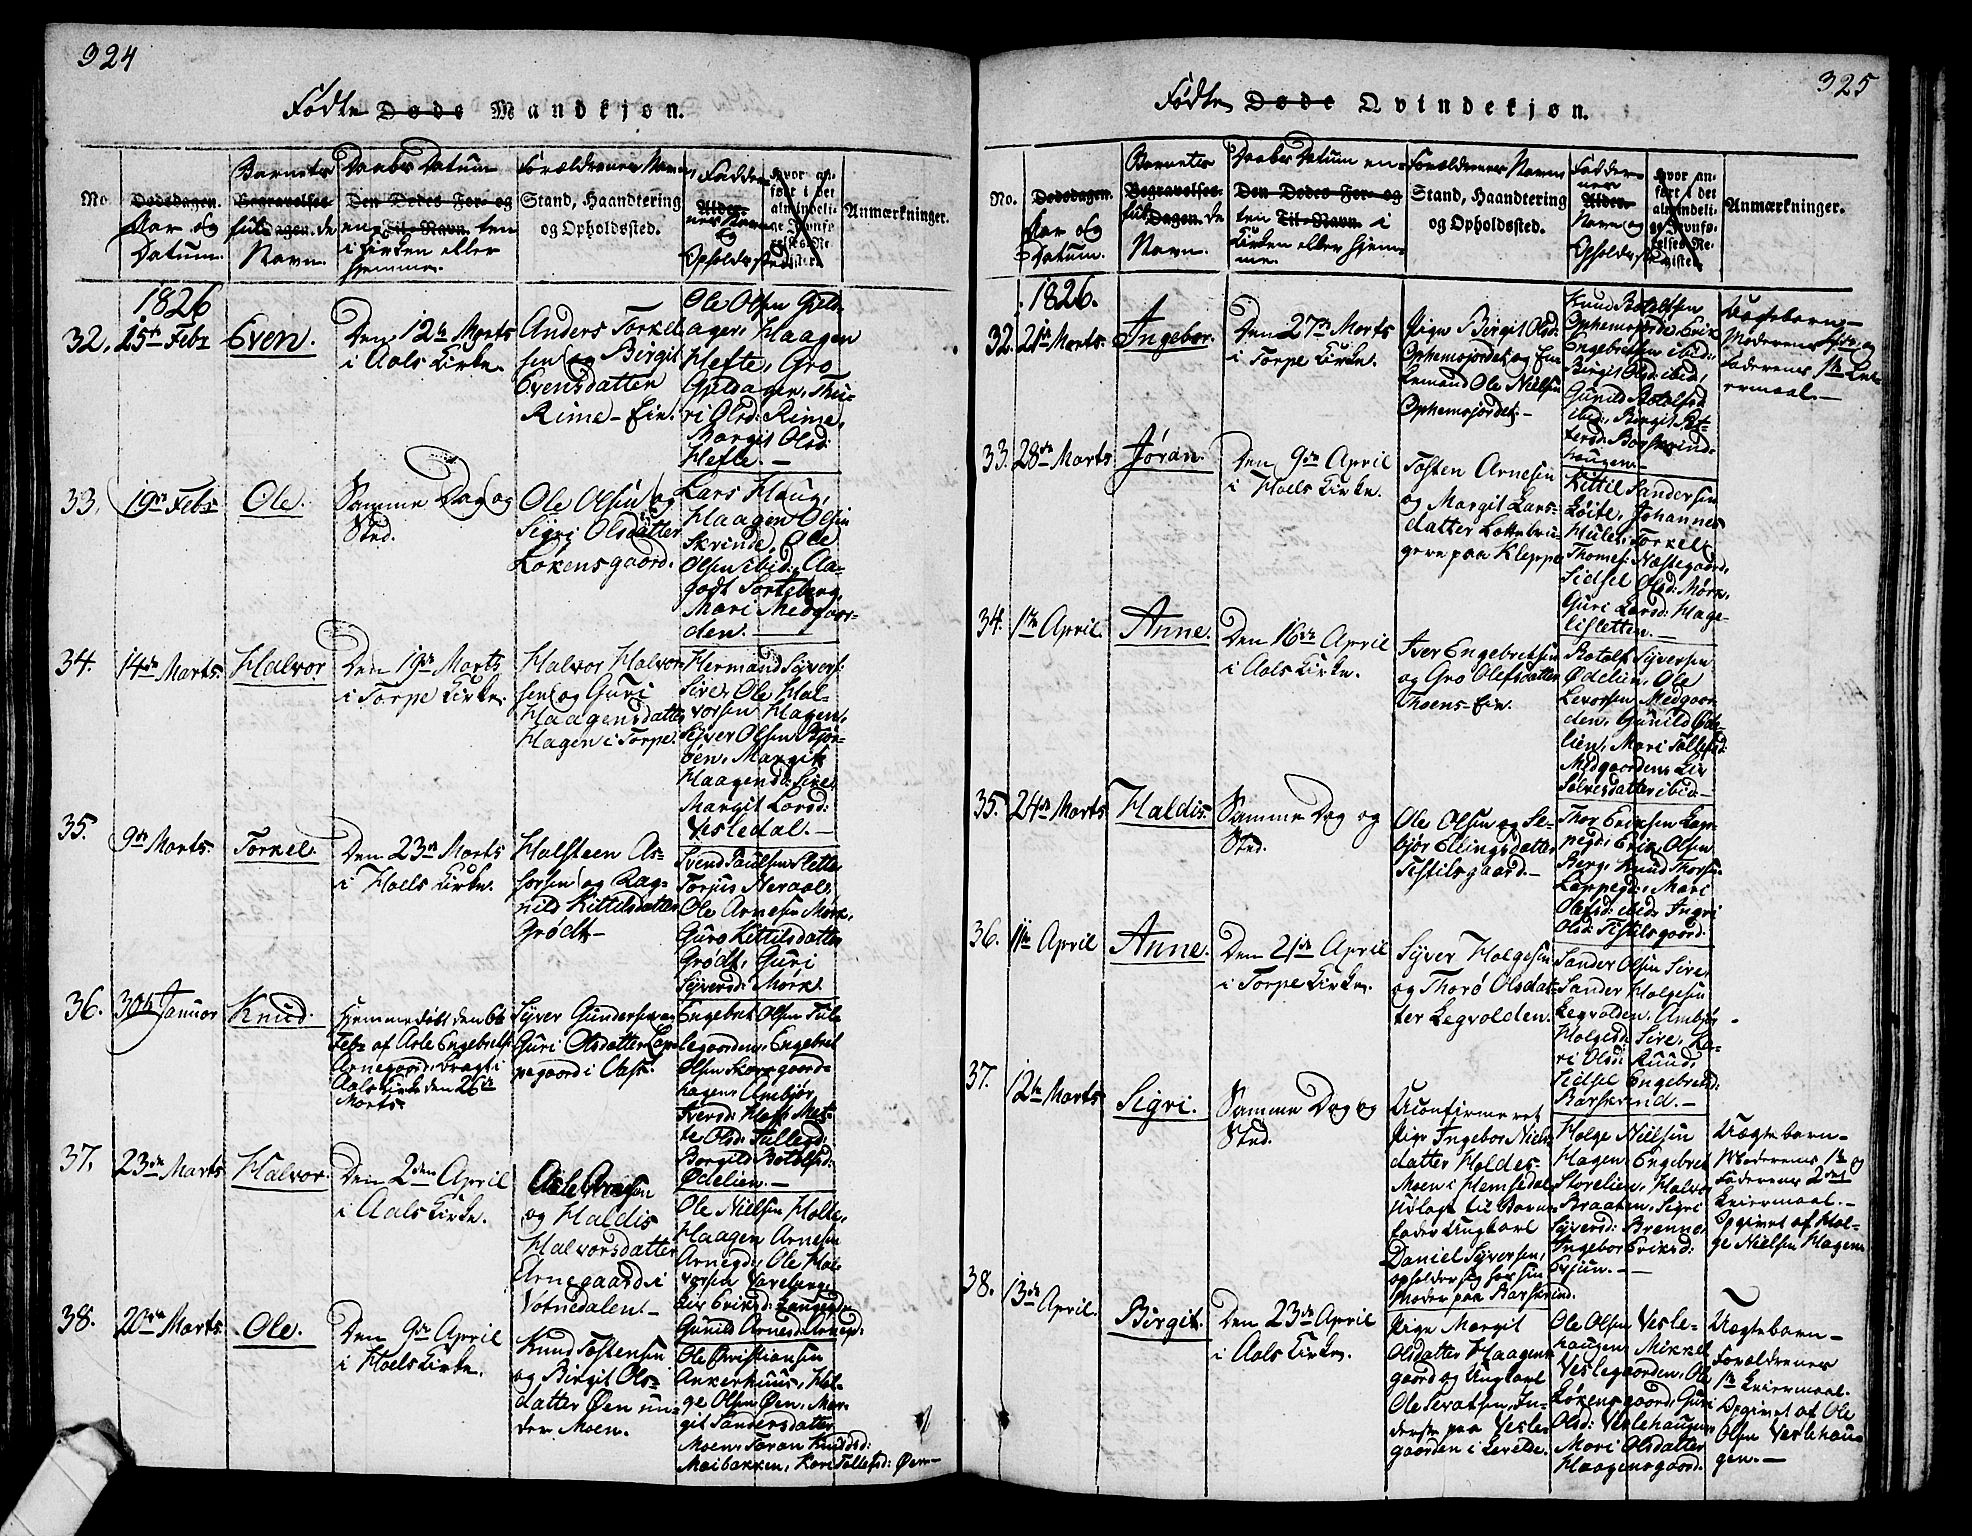 324
Fødte Døde Mandkjøn.
No.
Dødsdagen.
Aar og
Datum.
Barnets
Begravelses-
Dagen.
fulde
Navn.
Daabs Datum
Den Dødes For- og
Til-Navn
enten
i Kirken eller
hjemme.
Forældrenes Navn,
Stand, Haandtering
og Opholdssted.
Faddernes
Alder.
Navn
og
Opholdssted
Hvor an-
ført i det
almindeli-
ge Jevnfø-
relses-Re-
gister.
Anmærkninger.
1826
32.
25de Febr
Even.
Den 12te Marts
i Aals Kirke.
Anders Torkel-
sen og Birgit
Evensdatter
Rime-Eie.
Ole Olsen Guld-
ager, Haagen
Hefte, Gro
Guldager, Thu-
ri Olsd: Rime,
Margit Olsd:
Hefte.—
33.
19de Febr
Ole.
Samme Dag og
Sted.
Ole Olsen og
Sigri Olsdatter
Løkensgaard.
Lars Haug,
Haagen Olsen
Skrinde, Ole
Olsen ibid:, Aa-
godt Torteberg,
Mari Medgaar-
den.
34.
14de Marts.
Halvor
Den 19de Marts
i Torpe Kirke.
Halvor Halvor-
sen og Guri
Haagensdatter
Hagen i Torpe.
Hermand Syvers:
Sire, Ole Hal-
vorsen Hagen,
Syver Olsen Bjør-
øen, Margit
Haagensd: Sire,
Margit Larsd:
Vesledal.—
35.
9de Marts.
Torkel.
Den 23de Marts
i Hoels Kirke.
Halsteen As-
sorsen og Rag-
nild Kittilsdatter
Grødt—
Svend Paulsen Slette,
Torjus Neraal,
Ole Arnesen Mørk,
Guro Kittilsdatter
Grødt, Guri
Syversd: Mørk.
36.
30te Januar
Knud.
Hjemmedøbt den 6te
Febr af Asle Engebrets:
Arnegaard, bragt i
Aals Kirke den 26de
Marts.
Syver Gundersen og
Guri Olsdatter Lap-
pegaard i Aass.
Engebret Olsen Tule-
legaarden, Engebret
Olsen Skorsgaard-
hagen, Ambjør
Iversd: Hoff, Met-
te Olsd: Tullegd,
Borgild Botolfsd:
Ødelien.—
37.
23de Marts
Halvor.
Den 2den April
i Aals Kirke.
Asle Arnesen
og Haldis
Halvorsdatter
Arnegaard i
Votnedalen.—
Ole Nielsen Holte,
Haagen Arnesen
Arnegd:, Ole Hal-
vorsen Vareberg,
Liv Eriksd:
Gunild Arnesd: Arnegd:
38.
20de Marts.
Ole.
Den 9de April
i Hoels Kirke.
Knud Tostensen
og Birgit Ols-
datter Øen un-
der Moen.
Ole Christiansen
Ankerhuus, Hol-
ge Olsen Øen, Mar-
git Sandersdatter
Moen, Taran Knudsd:
Maibakken, Kari Tollefsd: Øen—
325
Fødte Døde Qvindekjøn.
No.
Dødsdagen.
Aar og
Datum.
Barnets
Begravelses-
Dagen.
fulde
Navn.
Daabs Datum en-
Den Dødes For- og
ten Til-Navn i
Kirken eller hjem-
me.
Forældrenes Navn
Stand, Haandtering
og Opholdssted.
Fadder-
nes
Alder.
Navn og
Opholdssted
Hvor an-
ført i det
almindeli-
ge Jevnfø-
relses-Re-
gister.
Anmærkninger.
1826.
32.
21de Marts.
Ingebor.
Den 27de Marts
i Torpe Kirke.
Pige Birgit Olsd:
Ophemsjordet og En-
kemand Ole Nielsen
Ophemsjordet.—
Knud Botolfsen
Ophemsjordet, Erik
Engebretsen ibid:,
Birgit Olsd: ibid,
Gunild Botolfsd
ibid:, Birgit Pet-
tersd: Baskerind-
haugen.—
Uægtebarn—
Moderens og
Faderens 1te Lei-
ermaal.—
33.
28de Marts
Jøran.
Den 9de April
i Hoels Kirke.
Tosten Arnesen
og Margit Lars-
datter Lottebru-
gere paa Kleppe
Kittil Sandersen
Løite, Johannes
Hules, Torkel
Thomes: Næstegaard,
Sidsel Olsd: Mørk,
Guri Larsd: Hage-
lisletten.—
34.
1te April.
Anne.
Den 16de April
i Aals Kirke.
Iver Engebretsen
og Gro Olefsdatter
Thoens-Eie.
Botolf Syversen
Ødelien, Ole
Levorsen Medgaar-
den, Gunild Øde-
lien, Mari Tollefsd:
Medgaarden, Liv
Sølvesdatter ibid:—
35.
24de Marts
Haldis.
Samme Dag og
Sted.
Ole Olsen og Se-
bjør Ellingsdatter
Tistilsgaard.—
Thor Eriksen Lap-
pegd:, Erik Olsen
Berg, Knud Thorsen
Lappegd:, Mari
Olefsd: ibid, Ingri
Olsd: Tistilsgaard:
36.
11te April
Anne.
Den 21de April
i Torpe Kirke.
Syver Holgesen
og Thorø Olsdat-
ter Legvolden.
Sander Olsen Sire,
Sander Holgesen
Legvolden, Ambjør
Holgesd: Sire, Ka-
ri Olsd: Ruud,
Sidsel Engebretsd:
Barskrind.—
37.
12te Marts.
Sigri.
Samme Dag og
Sted.
Uconfirmeret
Pige Ingebor Niels-
datter Holdes-
Moen i Hemsedal,
udlagt til Barne-
fader Ungkarl
Daniel Syversen,
opholder sig hos sin
Moder paa Barskrind.
Holge Nielsen
Hagen, Engebret
Storelien, Halvor
Braaten, Sigri
Syversd: Brenne,
Ingebor Eriksd:
Evjun.—
Uægtebarn—
Moderens 1te og
Faderens 2det
Leiermaal.—
Opgivet af Hol-
ge Nielsen Hagen.
38.
13de April.
Birgit.
Den 23de April
i Aals Kirke.
Pige Margit
Olsdatter Haagens-
gaard og Ungkarl
Ole Levorsen, In-
derste paa Vesle-
gaarden i Leveld.
Ole Olsen Vesle-
haugen, Mikkel
Veslegaarden, Ole
Løkensgaard, Guri
Olsd: Veslehaugen,
Mari Olsdatter
Haagensgaard.
Uægtebarn—
Forældrenes
1te Leiermaal.
Opgivet af Ole
Olsen Veslehau-
gen.—